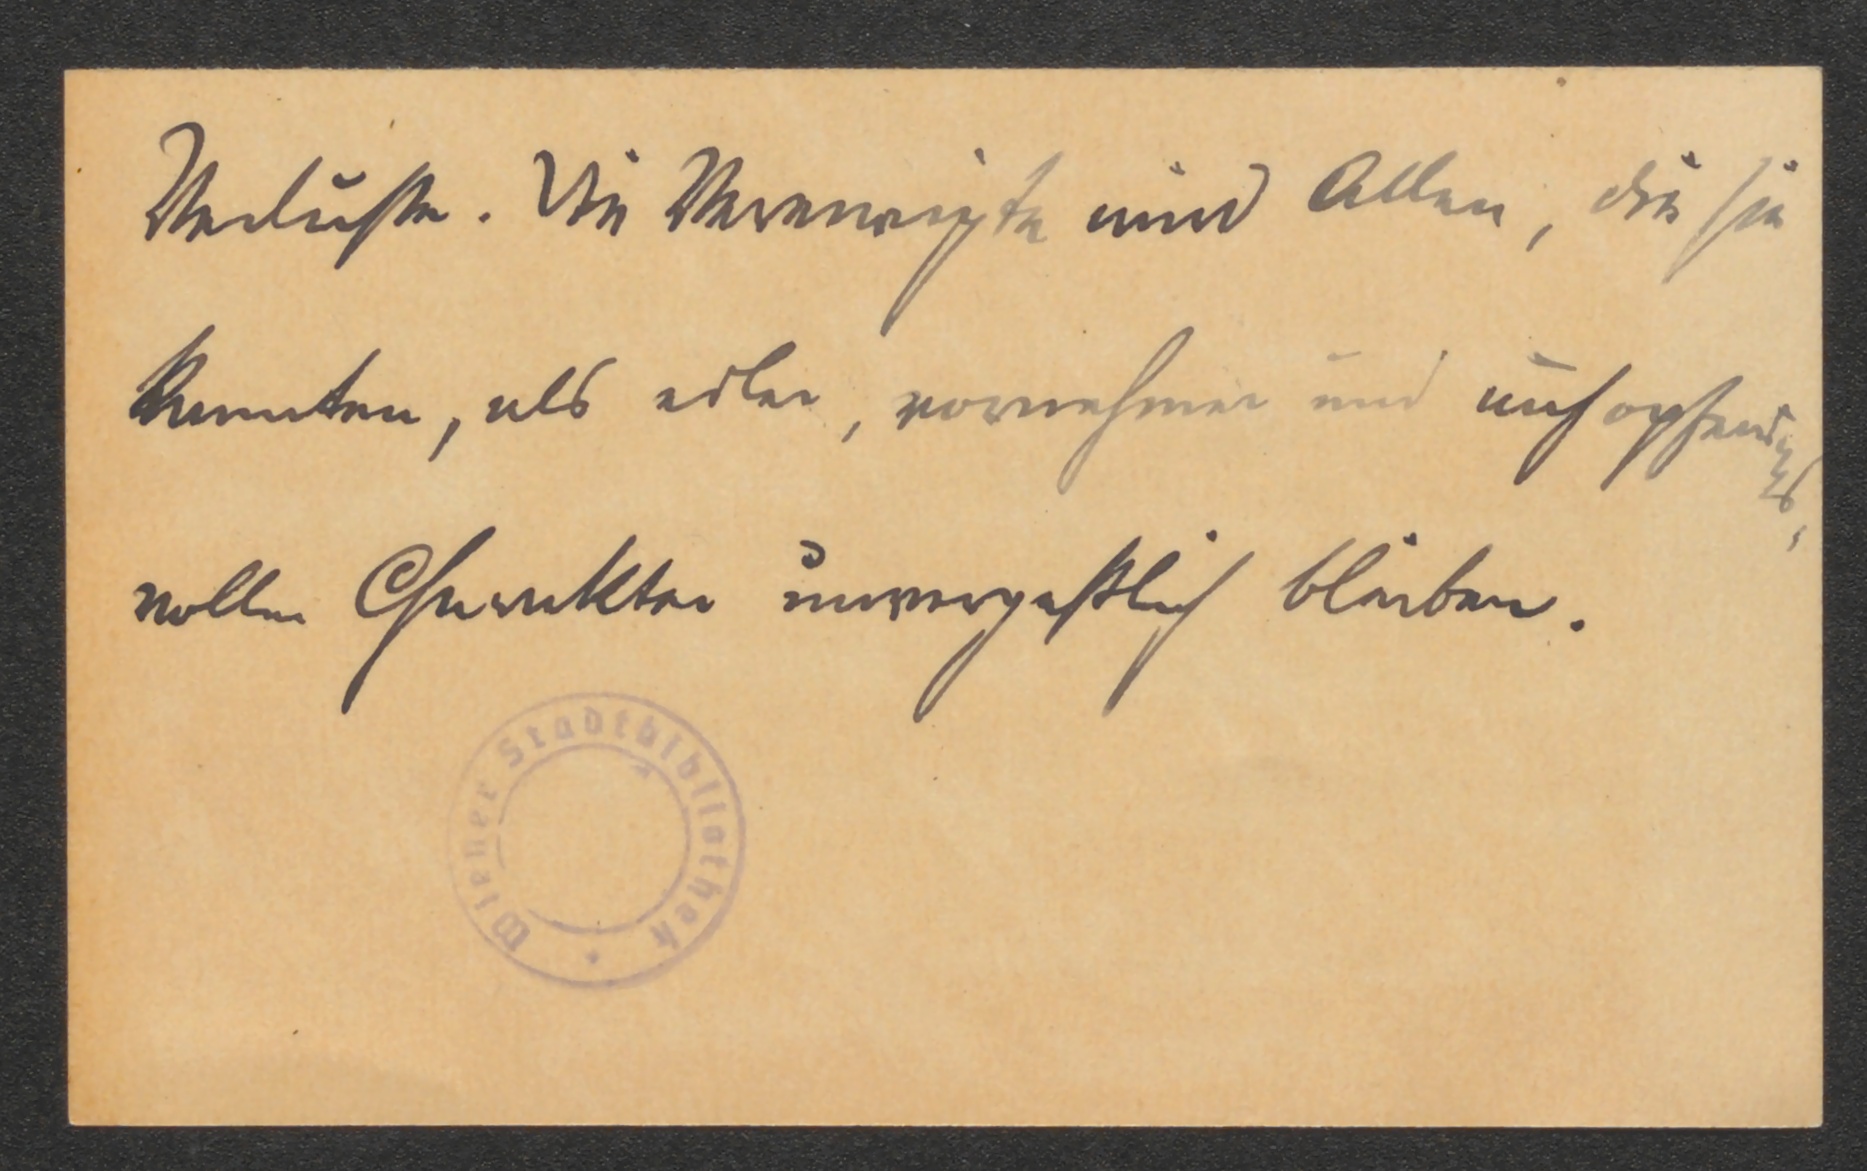 Verluste. Die Verewigte wird Allen, die sie
kannten, als edler, vornehmer und aufopferungs-
voller Charakter unvergeßlich bleiben.
Wiener Stadtbibliothek *